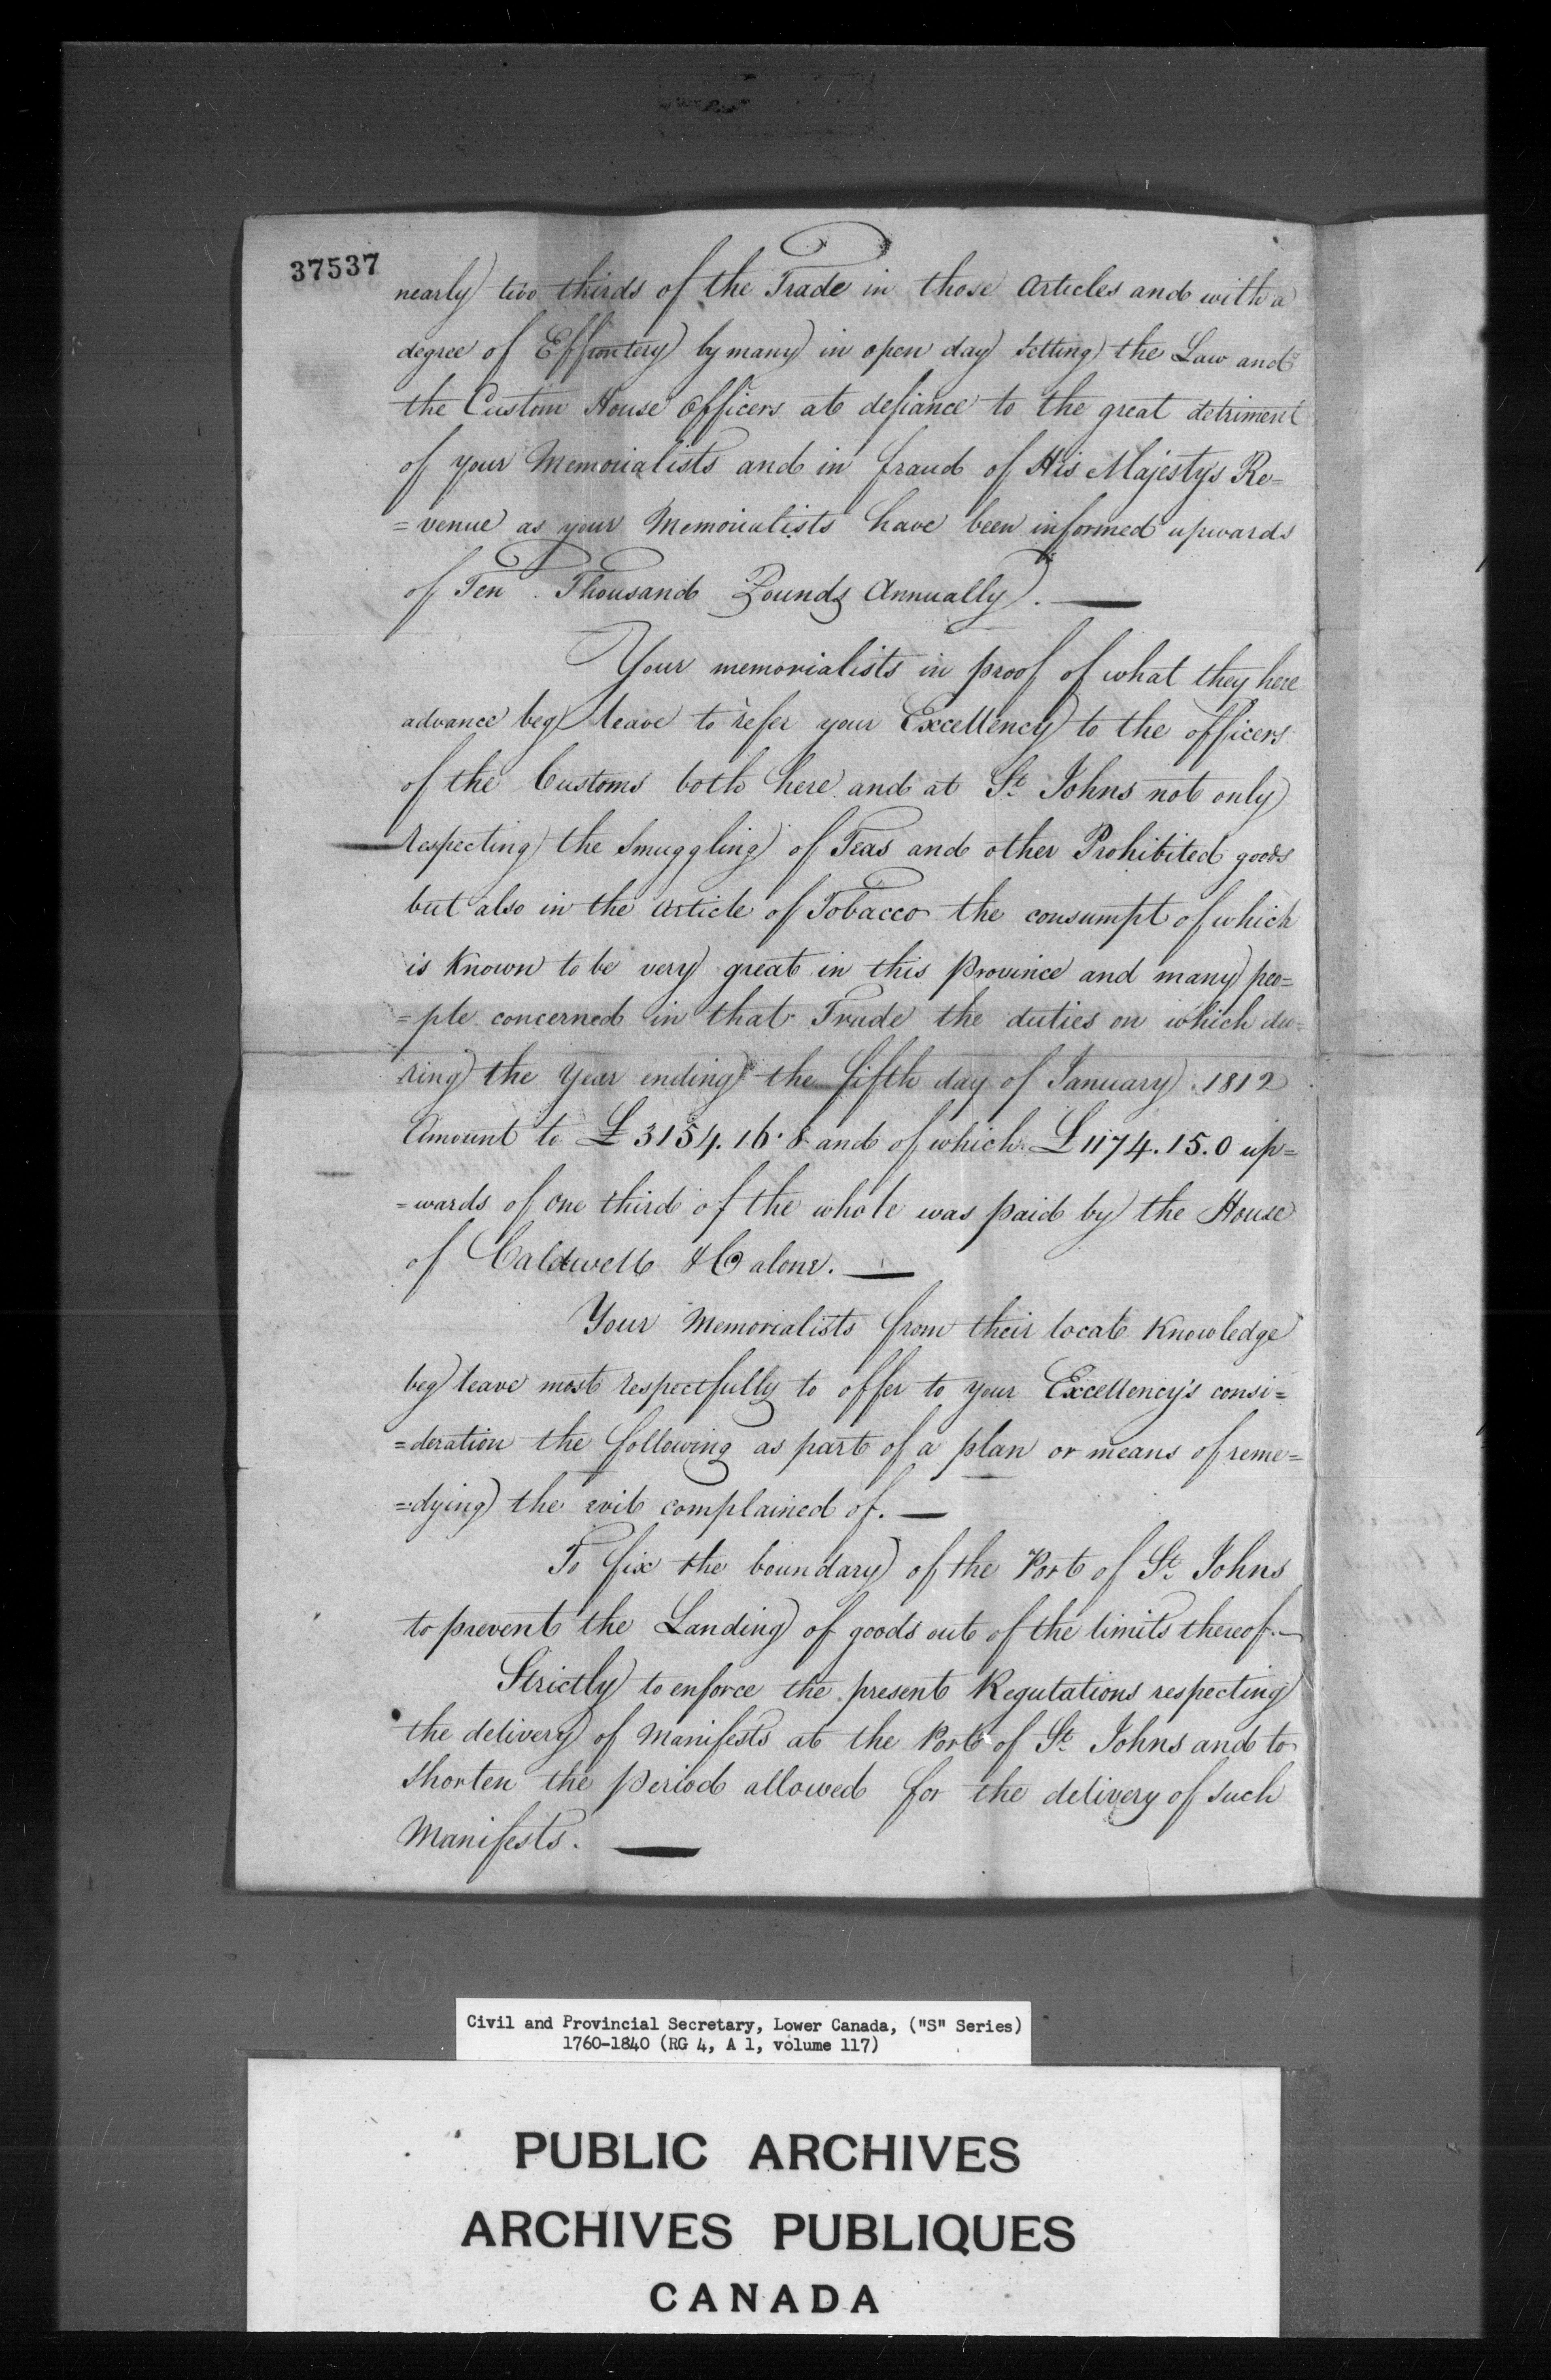 37537
nearly two thirds of the Trade in those Articles and with a
degree of Effrontery by many in open day setting the Law and
the Custom House Officers at defiance to the great detriment
of your Memorialists and in fraud of His Majesty's Re=
=venue as your Memorialists have been informed upwards
of Ten Thousand Pounds Annually. —
Your memorialists in proof of what they here
advance beg leave to refer your Excellency to the officers
of the Customs both here and at St. Johns not only
respecting the Smuggling of Teas and other Prohibited goods
but also in the Article of Tobacco the consumpt of which
is Known to be very great in this Province and many peo=
=ple concerned in that Trade the duties on which du=
ring the Year ending the fifth day of January 1812
Amount to £3154.16.8 and of which £1174.15.0 up=
=wards of one third of the whole was paid by the House
of Caldwell & Co alone. —
Your Memorialists from their local Knowledge
beg leave most respectfully to offer to your Excellency's consi=
=deration the following as part of a plan or means of reme=
=dying the evil complained of. —
To fix the boundary of the Port of St. Johns
to prevent the Landing of goods out of the limits thereof. —
Strictly to enforce the present Regulations respecting
the delivery of Manifests at the Port of St. Johns and to
shorten the period allowed for the delivery of such
Manifests. —
Civil and Provincial Secretary, Lower Canada, ("S" Series)
1760-1840 (RG 4, A 1, volume 117)
PUBLIC ARCHIVES
ARCHIVES PUBLIQUES
CANADA